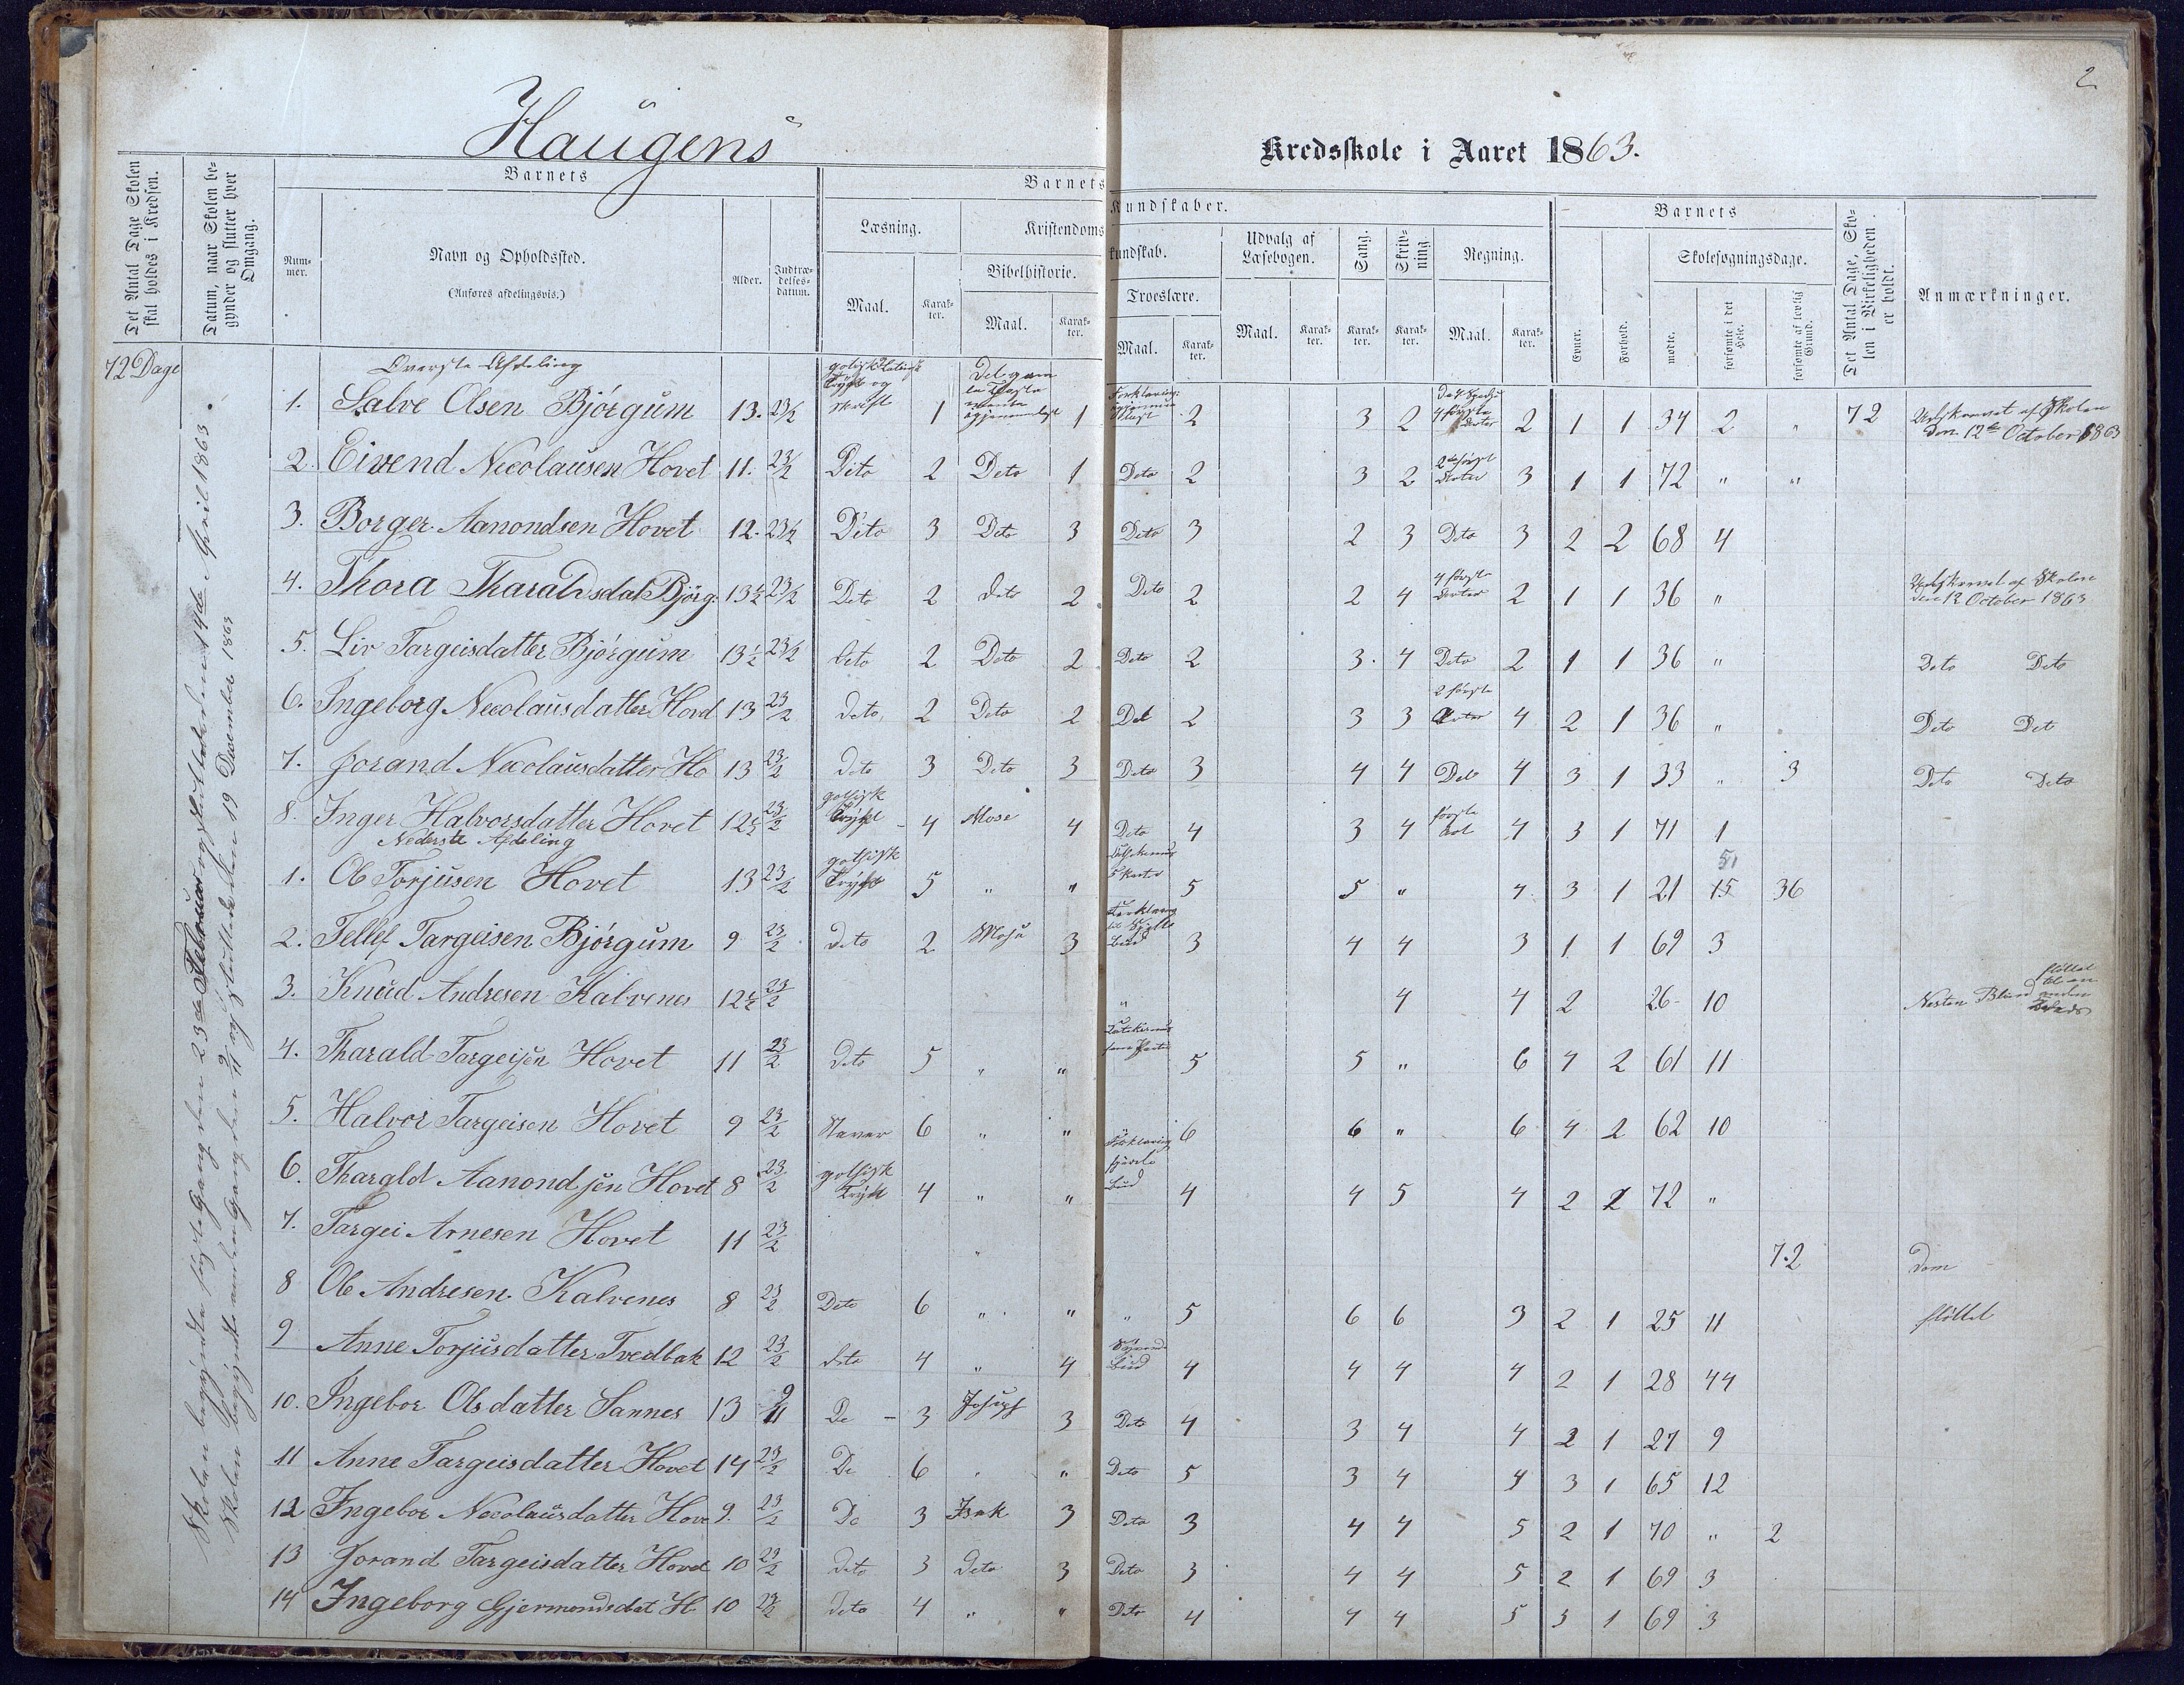 2
Haugens Kredsskole i Aaret 1863.
Det Antal Dage Skolen skal holdes i Kredsen.
Datum, naar Skolen begynder og slutter hver Omgang.
Barnets
Nummer.
Navn og Opholdssted.
(Anføres afdelingsvis.)
Alder.
Indtrædelsesdatum.
Barnets Kundskaber.
Læsning.
Maal.
Karakter.
Kristendomskundskab.
Bibelhistorie.
Maal.
Karakter.
Troeslære.
Maal.
Karakter.
Udvalg af Læsebogen.
Maal.
Karakter.
Sang.
Karakter.
Skrivning.
Karakter.
Regning.
Maal.
Karakter.
Barnets
Evner.
Forhold.
Skolesøgningsdage.
mødte.
forsømte i det Hele.
forsømte af lovlig Grund.
Det Antal Dage, Skolen i Virkeligheden er holdt.
Anmærkninger.
72 Dage
Skolen begyndte første Gang den 23de Februar og sluttede den 14de April 1863.
Skolen begyndte anden Gang den 9/11 og sluttede den 19 December 1863
Øverste Afdeling
1. Salve Olsen Bjørgum 13. 23/2 1 1 2 3 2 4 første 2 1 1 34 2 " 72 Udskrevet af Skolen den 12te October 1863
2. Eivend Nicolausen Hovet 11. 23/2 Dito 2 Deto 1 Deto 2 3 2 3 1 1 72 " "
3. Borger Aanondsen Hovet 12. 23/2 Dito 3 Deto 3 Deto 3 2 3 Deto 3 2 2 68 4
4. Thora Tharaldsdat Bjørg. 13½ 23/2 Deto 2 deto 2 Deto 2 2 4 4 første 2 1 1 36 " Udskrevet af Skolen den 12 October 1863
5. Liv Targeisdatter Bjørgum 13½ 23/2 deto 2 Deto 2 Deto 2 3. 4 Deto 2 1 1 36 " Deto Deto
6. Ingeborg Nicolausdatter Hovd 13 23/2 deto, 2 Deto 2 Det 2 3 3 2 første 4 2 1 36 " Deto Det
7. Jorand Nicolausdatter Ho 13 23/2 deto 3 Deto 3 Deto 3 4 4 Deto 4 3 1 33 " 3 Deto Deto
8. Inger Halvorsdatter Hovet 12½ 23/2 gothisk Trykt 4 Mose 4 Deto 4 3 4 første 4 3 1 71 1
Nederste Afdeling
1. Ole Torjusen Hovet 13 23/2 gothisk Trykt 5 " " 5 5 " 4 3 1 21 15 51 36
2. Tellef Targeisen Bjørgum 9 23/2 deto 2 Mose 3 3 4 4 3 1 1 69 3
3. Knud Andresen Kalvenes 12½ 23/2 " 4 4 2 26 10 flöttet til en anden
4. Tharald Targeisen Hovet 11 23/2 deto 5 " " 5 5 " 6 4 2 61 11
5. Halvor Targeisen Hovet 9 23/2 Staver 6 " " 6 6 " 6 4 2 62 10
6. Tharald Aanondsen Hovet 8 23/2 gothisk Trykt 4 " " 4 4 5 4 2 2 72 "
7. Targei Arnesen Hovet 11 23/2 " 72
8 Ole Andresen Kalvenes 8 23/2 Deto 6 " " " 5 6 6 3 2 1 25 11 flöttet
9 Anne Torjusdatter Tvedbak 12 23/2 deto 4 " 4 4 4 4 4 2 1 28 44
10. Ingebor Olsdatter Sannes 13 9/11 De 3 Josef 3 Deto 4 3 4 4 2 1 27 9
11 Anne Targeisdatter Hovet 14 23/2 De 6 " " Deto 5 3 4 4 3 1 65 12
12 Ingebor Nicolausdatter Hove 9. 23/2 De 3 Isak 3 Deto 3 4 4 5 2 1 70 " 2
13 Jorand Targeisdatter Hovet 10 23/2 deto 3 deto 3 Deto 3 4 4 5 2 1 69 3
14 Ingeborg Gjermundsdat H 10 23/2 deto 4 " " Deto 4 4 4 5 3 1 69 3